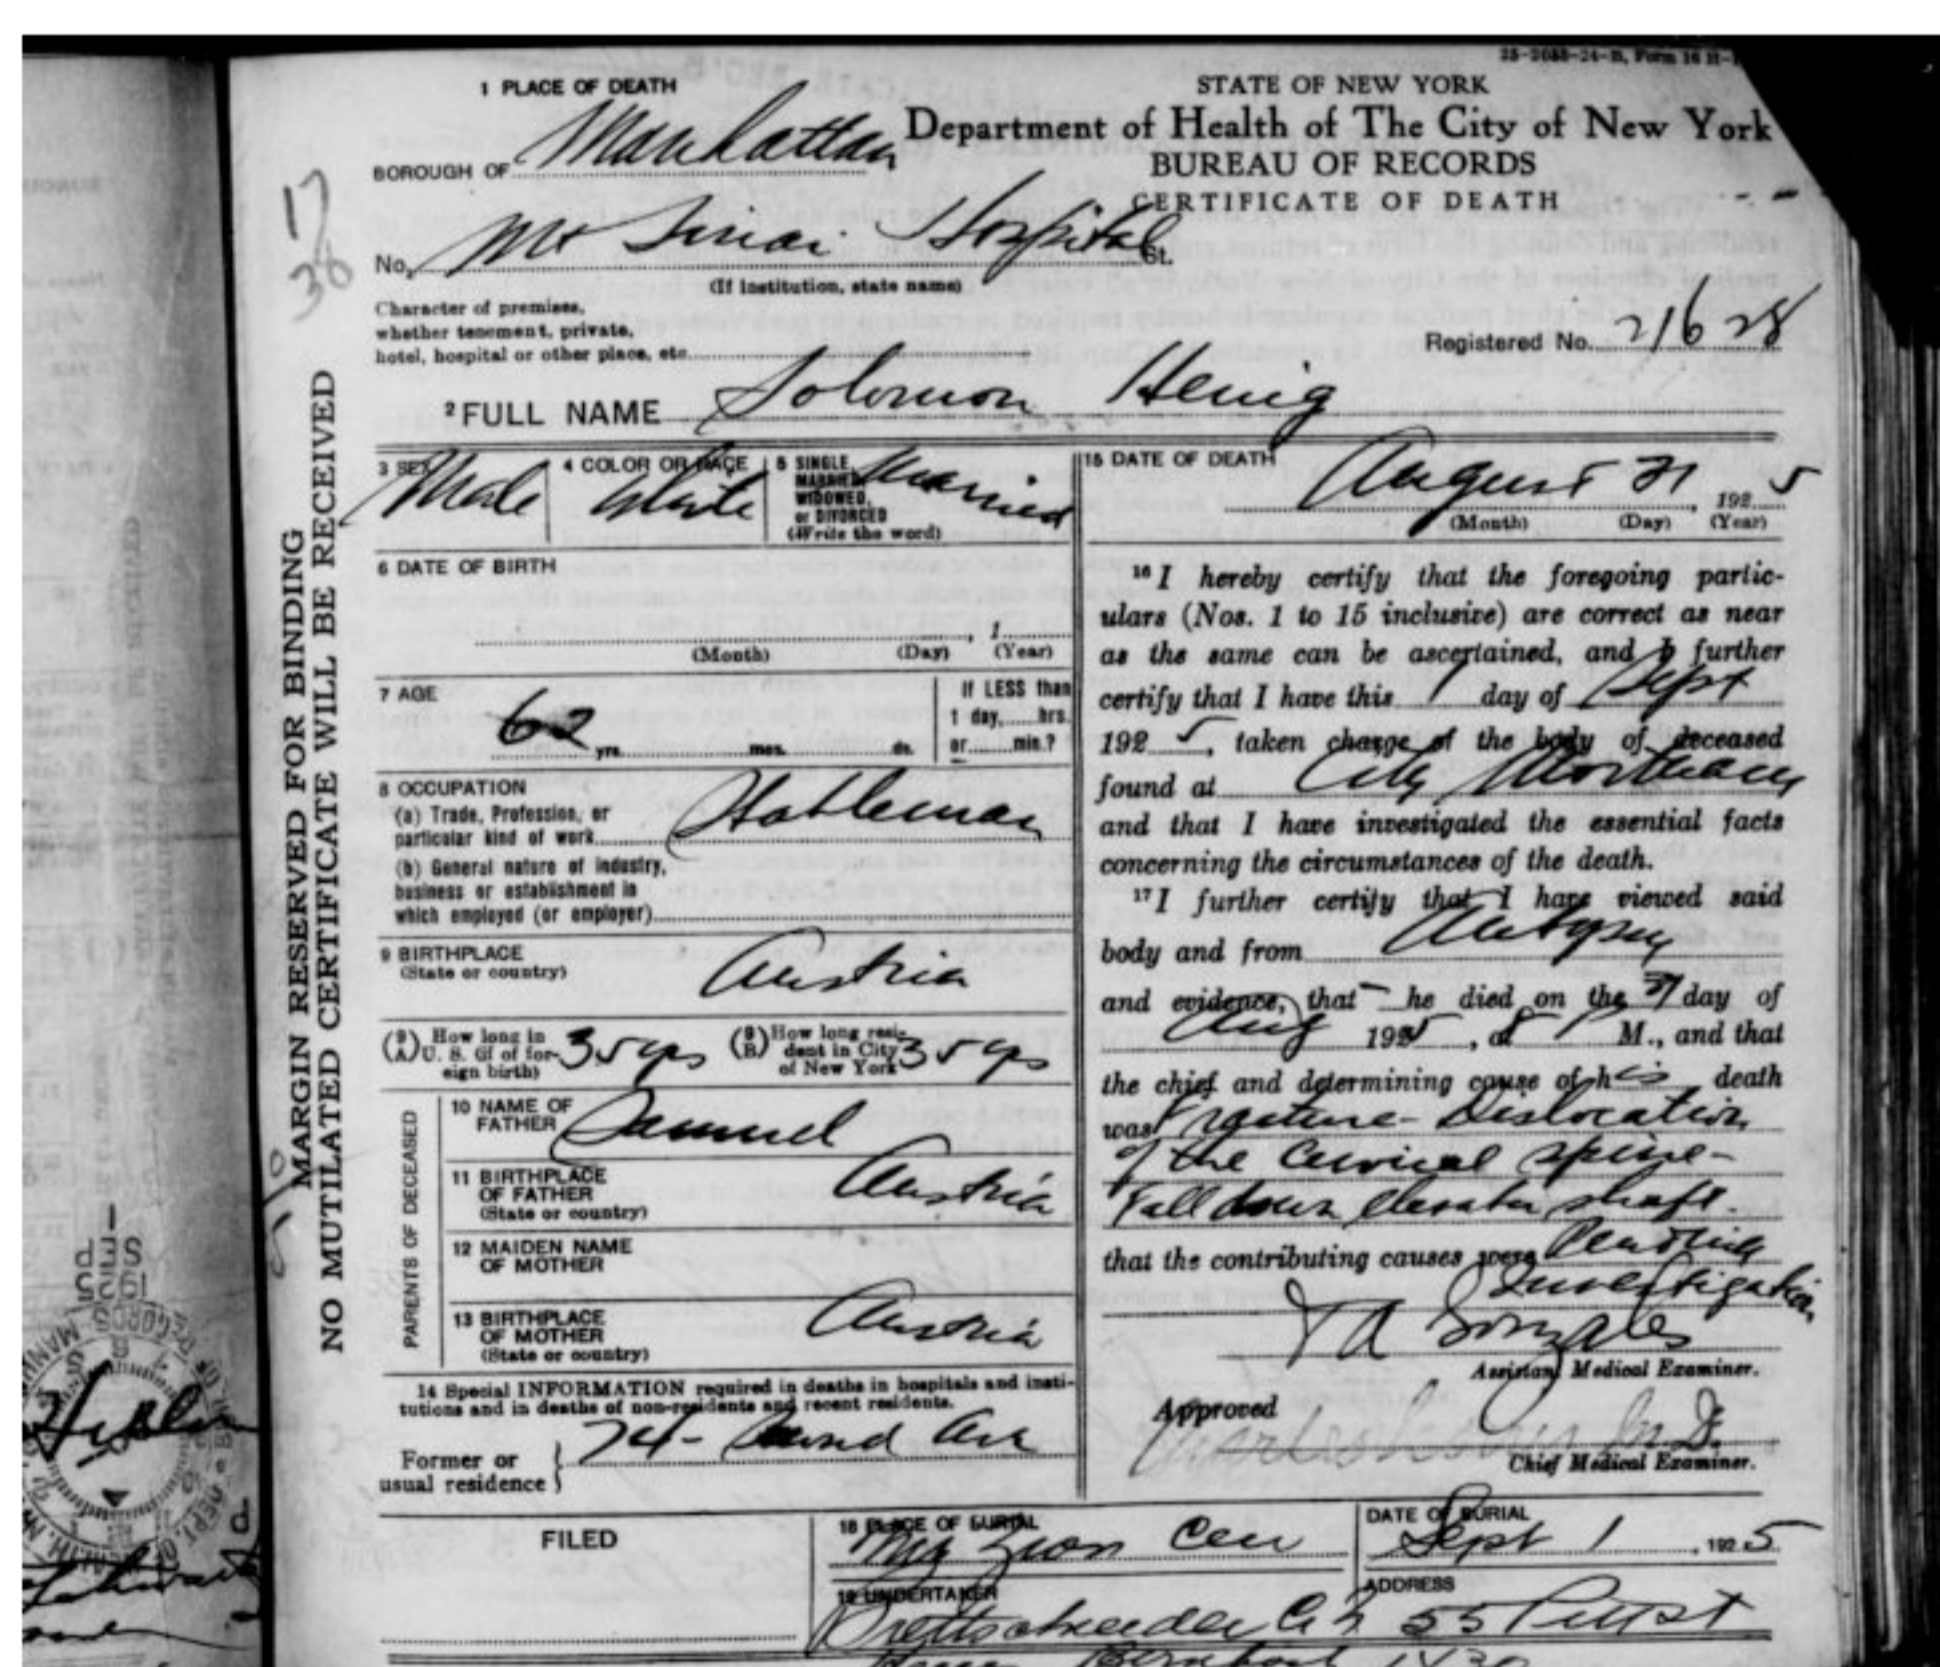 25-2033-24-B, Form 16 H-
1 PLACE OF DEATH
STATE OF NEW YORK
Department of Health of The City of New York
BUREAU OF RECORDS
CERTIFICATE OF DEATH
BOROUGH OF Manhattan
No. Mt Sinai Hospital St.
(If institution, state name)
Character of premises,
whether tenement, private,
hotel, hospital or other place, etc.
Registered No. 21628
17
38
2 FULL NAME Solomon Henig
3 SEX Male
4 COLOR OR RACE White
5 SINGLE, MARRIED, WIDOWED, or DIVORCED (Write the word) Married
6 DATE OF BIRTH
, 1
(Month) (Day) (Year)
7 AGE
62 yrs. mos. ds.
If LESS than
1 day, hrs.
or min.?
8 OCCUPATION
(a) Trade, Profession, or
particular kind of work Stableman
(b) General nature of industry,
business or establishment in
which employed (or employer)
9 BIRTHPLACE
(State or country) Austria
(9 A) How long in U. S. (if of foreign birth) 35 yrs
(9 B) How long resident in City of New York 35 yrs
PARENTS OF DECEASED
10 NAME OF
FATHER Samuel
11 BIRTHPLACE
OF FATHER
(State or country) Austria
12 MAIDEN NAME
OF MOTHER
13 BIRTHPLACE
OF MOTHER
(State or country) Austria
14 Special INFORMATION required in deaths in hospitals and insti-
tutions and in deaths of non-residents and recent residents.
Former or
usual residence } Ave
15 DATE OF DEATH
August 31, 1925
(Month) (Day) (Year)
16 I hereby certify that the foregoing partic-
ulars (Nos. 1 to 15 inclusive) are correct as near
as the same can be ascertained, and I further
certify that I have this 1 day of Sept
1925, taken charge of the body of deceased
found at City Mortuary
and that I have investigated the essential facts
concerning the circumstances of the death.
17 I further certify that I have viewed said
body and from Autopsy
and evidence, that he died on the 31 day of
Aug 1925, at P M., and that
the chief and determining cause of his death
was Fracture-Dislocation
of the Cervical spine-
Fall down elevator shaft.
that the contributing causes were Pending
Investigation
T A Gonzales
Assistant Medical Examiner.
Approved
Charles Norris M.D.
Chief Medical Examiner.
FILED
18 PLACE OF BURIAL
Mt Zion Cem
DATE OF BURIAL
Sept 1, 1925
19 UNDERTAKER
Brettschneider
ADDRESS
55 Pitt St
MARGIN RESERVED FOR BINDING
NO MUTILATED CERTIFICATE WILL BE RECEIVED
SEP
1925